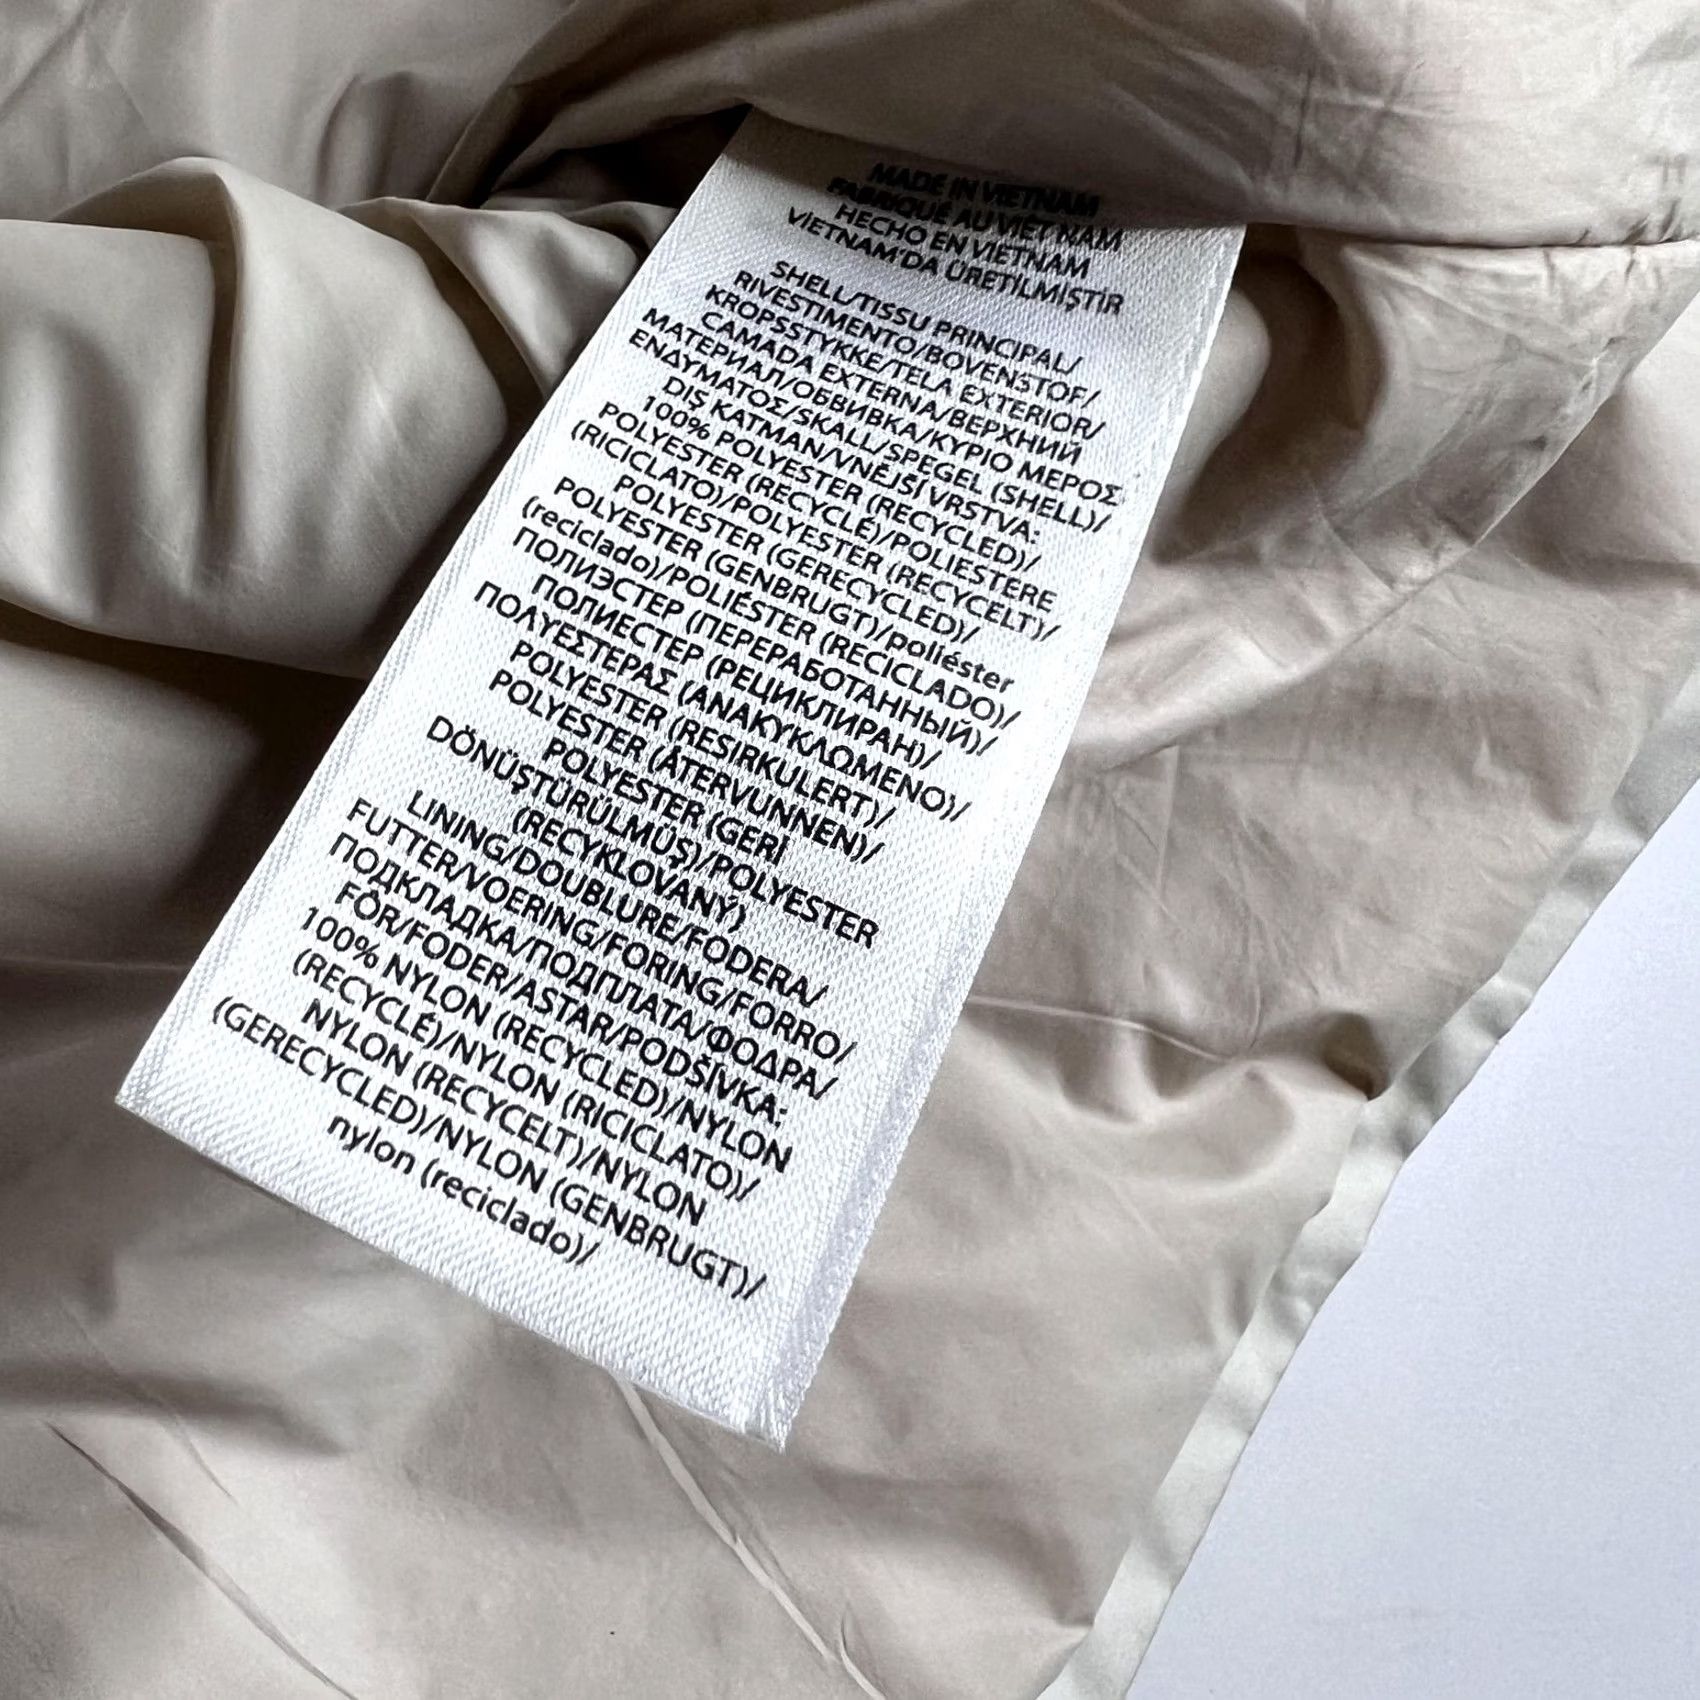 MADE IN VIETNAM
FABRIQUÉ AU VIET NAM
HECHO EN VIETNAM
VİETNAM'DA ÜRETİLMİŞTİR
SHELL/TISSU PRINCIPAL/
RIVESTIMENTO/BOVENSTOF/
KROPSSTYKKE/TELA EXTERIOR/
CAMADA EXTERNA/ВЕРХНИЙ
МАТЕРИАЛ/ОБВИВКА/ΚΥΡΙΟ ΜΕΡΟΣ
ΕΝΔΥΜΑΤΟΣ/SKALL/SPEGEL (SHELL)/
DIŞ KATMAN/VNĚJŠÍ VRSTVA:
100% POLYESTER (RECYCLED)/
POLYESTER (RECYCLÉ)/POLIESTERE
(RICICLATO)/POLYESTER (RECYCELT)/
POLYESTER (GERECYCLED)/
POLYESTER (GENBRUGT)/poliéster
(reciclado)/POLIÉSTER (RECICLADO)/
ПОЛИЭСТЕР (ПЕРЕРАБОТАННЫЙ)/
ПОЛИЕСТЕР (РЕЦИКЛИРАН)/
ΠΟΛΥΕΣΤΕΡΑΣ (ΑΝΑΚΥΚΛΩΜΕΝΟ)/
POLYESTER (RESIRKULERT)/
POLYESTER (ÅTERVUNNEN)/
POLYESTER (GERİ
DÖNÜŞTÜRÜLMÜŞ)/POLYESTER
(RECYKLOVANÝ)
LINING/DOUBLURE/FODERA/
FUTTER/VOERING/FORING/FORRO/
ПОДКЛАДКА/ПОДПЛАТА/ΦΟΔΡΑ/
FÔR/FODER/ASTAR/PODŠÍVKA:
100% NYLON (RECYCLED)/NYLON
(RECYCLÉ)/NYLON (RICICLATO)/
NYLON (RECYCELT)/NYLON
(GERECYCLED)/NYLON (GENBRUGT)/
nylon (reciclado)/